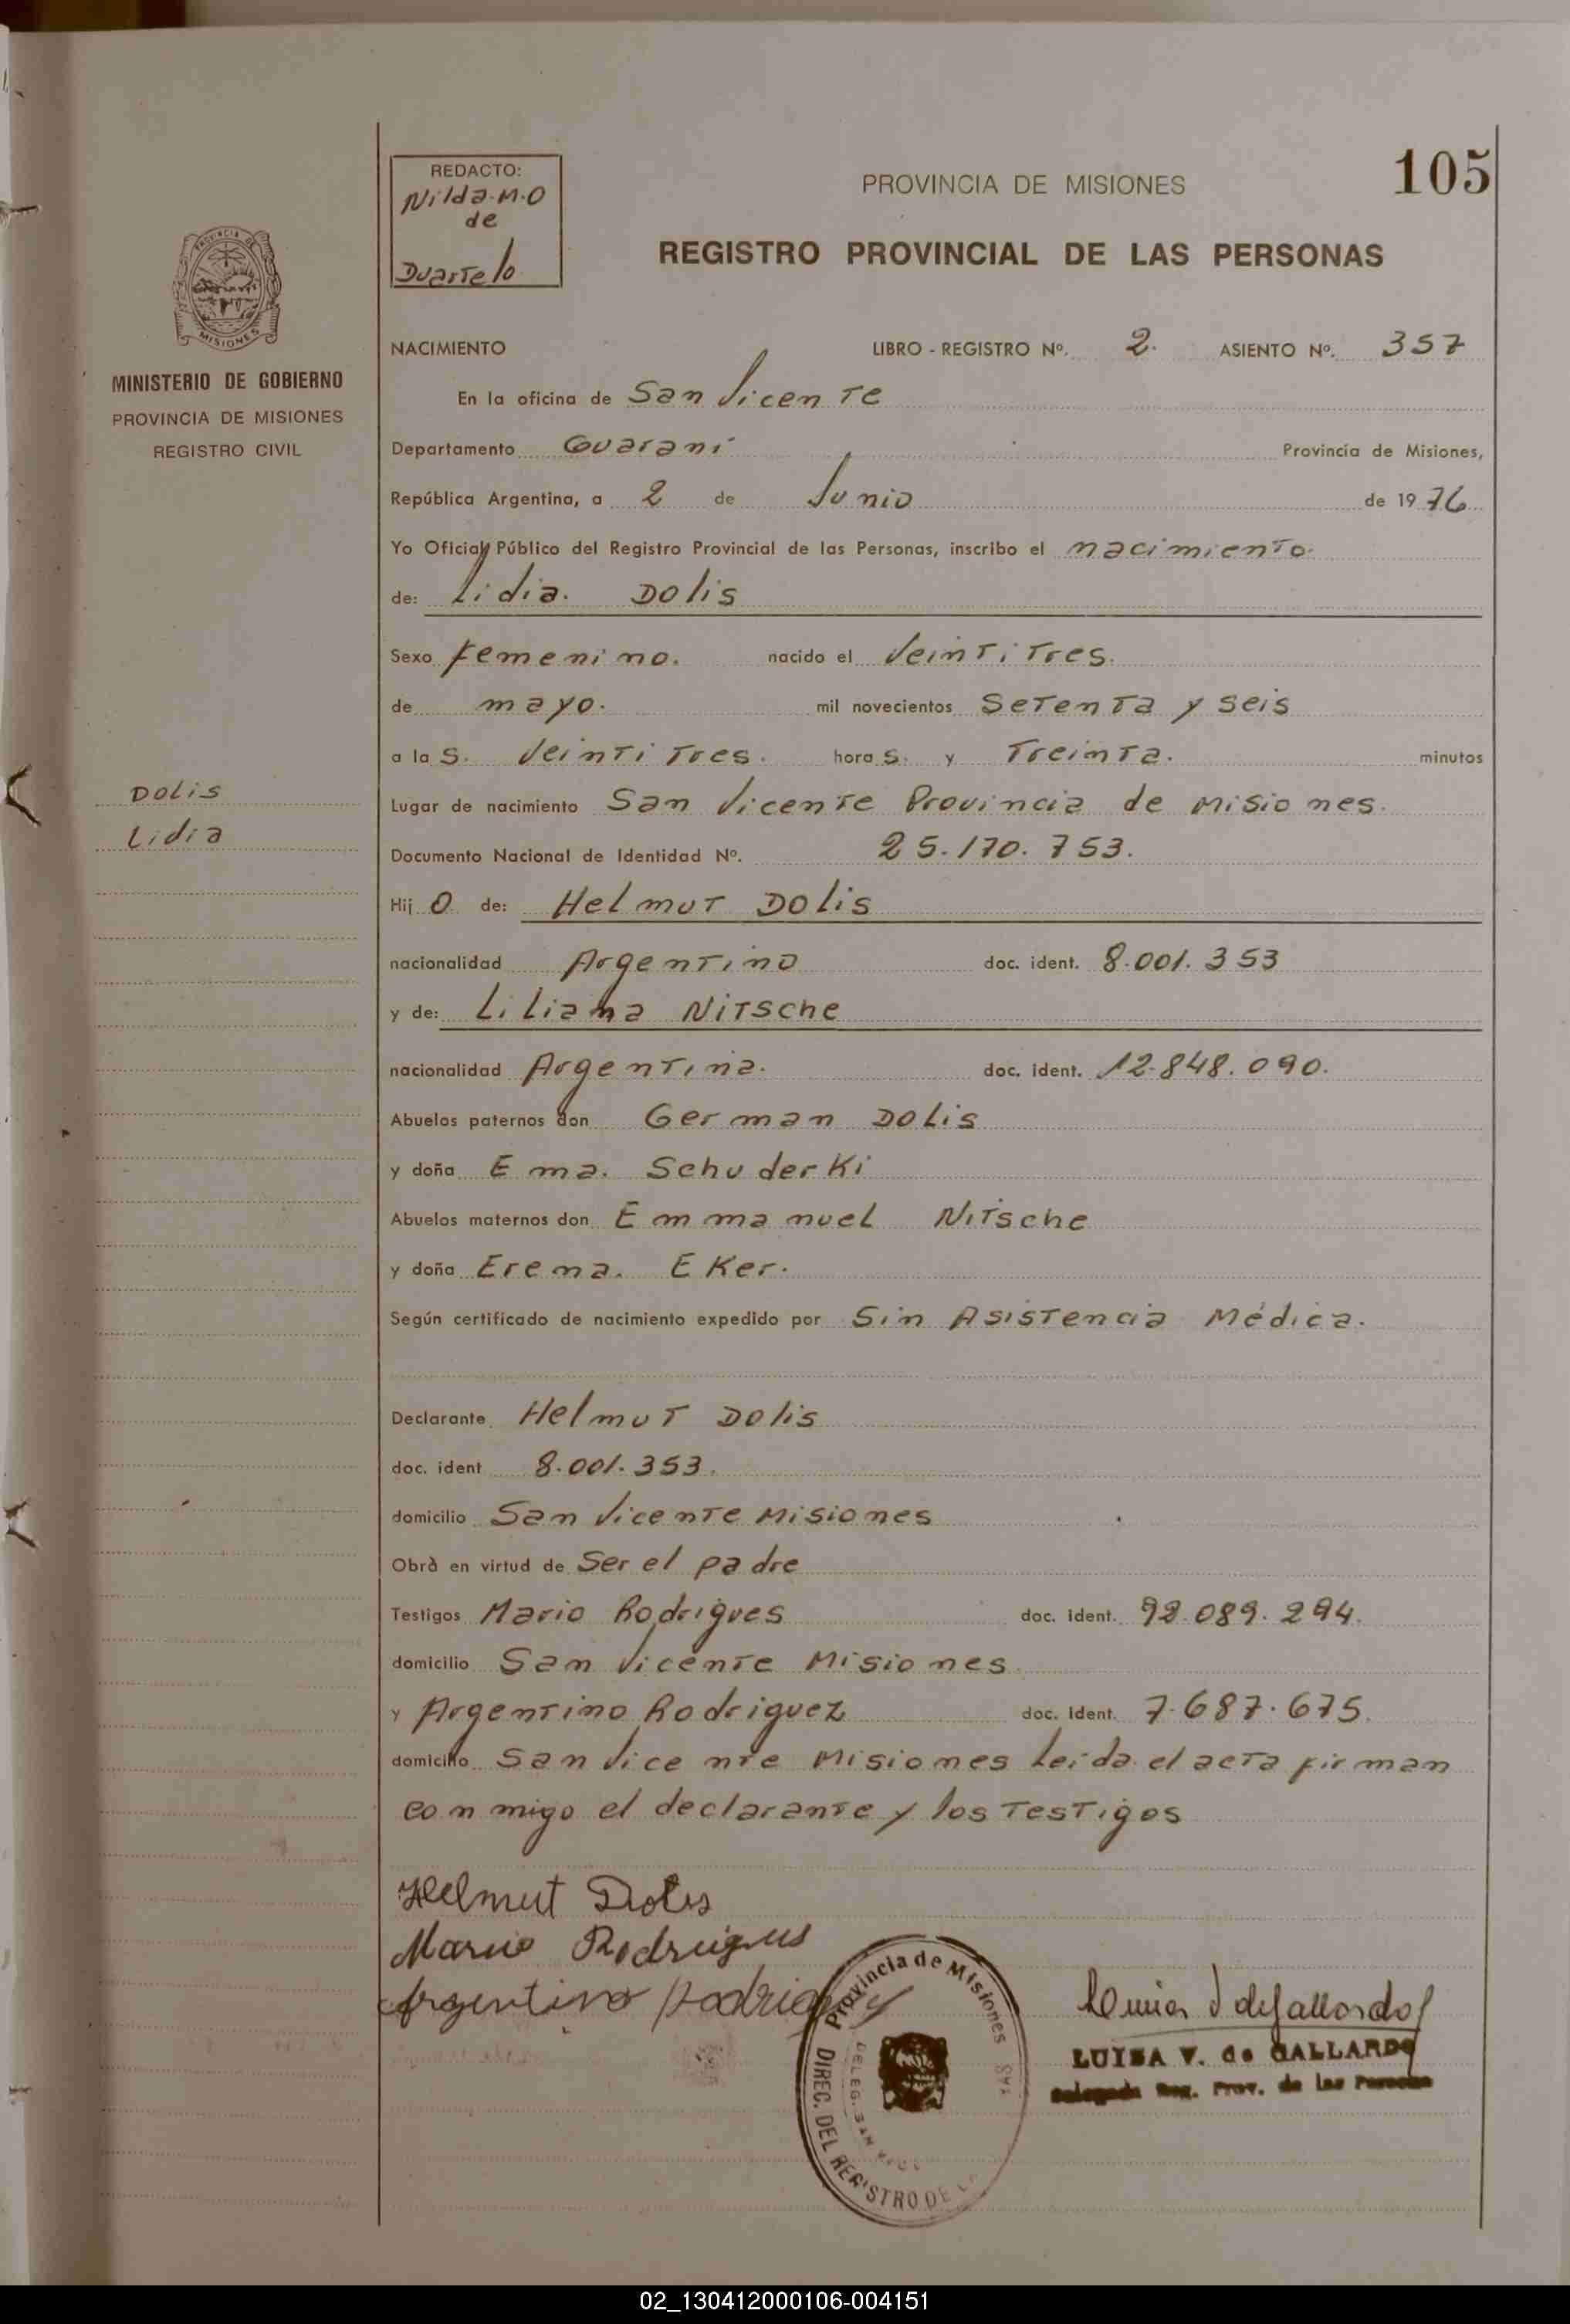 105
REDACTO:
Nilda. M. O
de
Duarte lo
PROVINCIA DE MISIONES
REGISTRO PROVINCIAL DE LAS PERSONAS
PROVINCIA DE
MISIONES
MINISTERIO DE GOBIERNO
PROVINCIA DE MISIONES
REGISTRO CIVIL
NACIMIENTO LIBRO - REGISTRO Nº. 2. ASIENTO Nº. 357
En la oficina de San Vicente
Departamento Guaraní Provincia de Misiones,
República Argentina, a 2 de Junio de 1976
Yo Oficial Público del Registro Provincial de las Personas, inscribo el nacimiento.
de: Lidia. Dolis
Sexo femenino. nacido el Veintitres.
de mayo. mil novecientos Setenta y seis
a la s. Veintitres. hora s. y Treinta. minutos
Dolis
Lidia
Lugar de nacimiento San Vicente Provincia de Misiones.
Documento Nacional de Identidad Nº. 25.170.753.
Hij o de: Helmut Dolis
nacionalidad Argentino doc. ident. 8.001.353
y de: Liliana Nitsche
nacionalidad Argentina. doc. ident. 12.848.090.
Abuelos paternos don German Dolis
y doña Ema. Schuderki
Abuelos maternos don Emmanuel Nitsche
y doña Erema. Eker.
Según certificado de nacimiento expedido por Sin Asistencia Médica.
Declarante Helmut Dolis
doc. ident 8.001.353.
domicilio San Vicente Misiones
Obrà en virtud de Ser el padre
Testigos Mario Rodrigues doc. ident. 92.089.294.
domicilio San Vicente Misiones.
y Argentino Rodriguez doc. ident. 7.687.675.
domicilio San Vicente Misiones Leida el acta firman
conmigo el declarante y los testigos
Helmut Dolis
Mario Rodrigues
Argentino Rodriguez
Provincia de Misiones
DIREC. DEL REGISTRO DE
DELEG. SAN
Luisa V de Gallardo
LUISA V. de GALLARDO
Delegada Reg. Prov. de las Personas
02_130412000106-004151